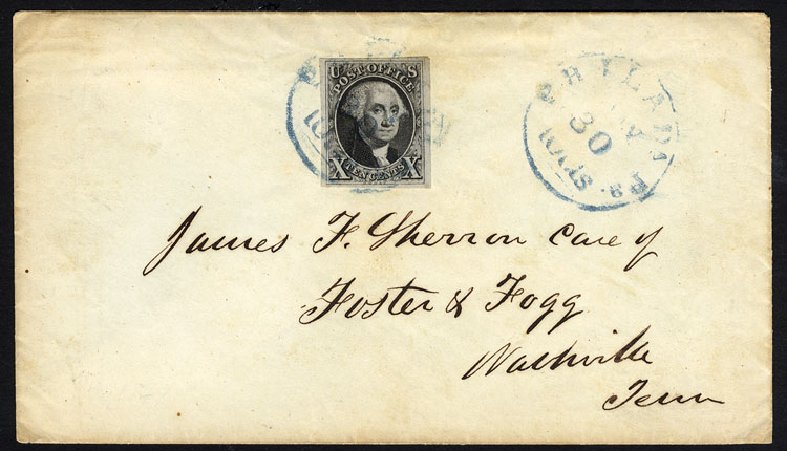 U S
POST OFFICE
X TEN CENTS X
PHILADA Pa.
30
10 cts
James F. Sherron Care of
Foster & Fogg
Nashville
Tenn